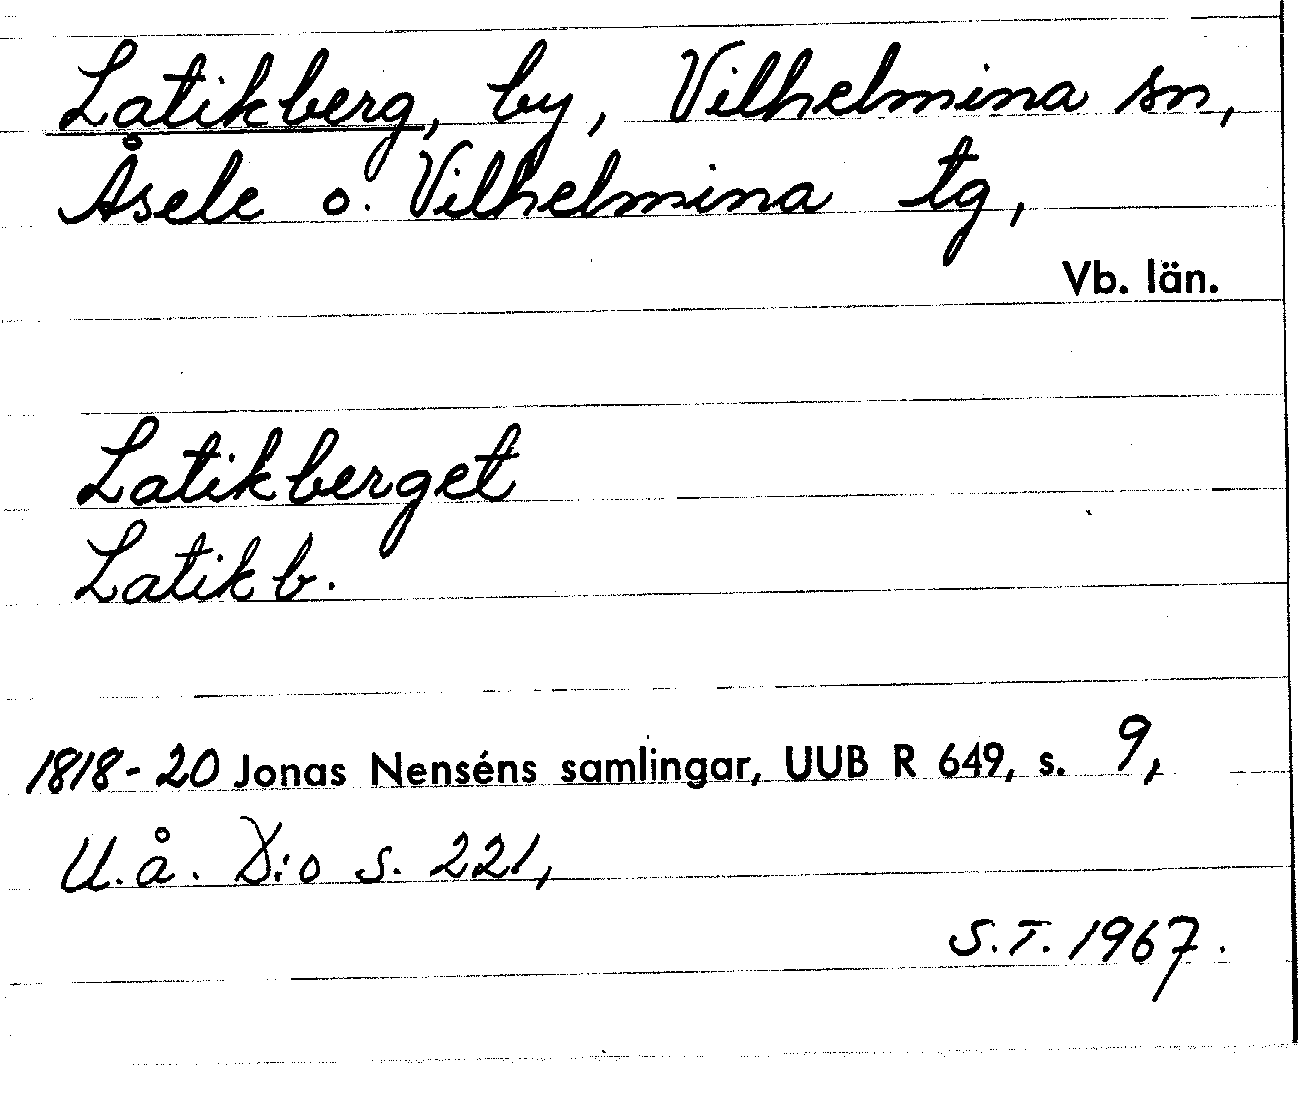 Latikberg, by, Vilhelmina sn,
Åsele o. Vilhelmina tg,
Vb. län.
Latikberget
Latikb.
1818-20 Jonas Nenséns samlingar, UUB R 649, s. 9,
U.å. D:o s. 221,
S.T. 1967.